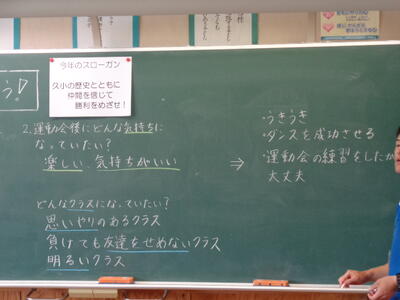 今年のスローガン
久小の歴史とともに
仲間を信じて
勝利をめざせ!
う!
2.運動会後にどんな気持ちに
なっていたい?
楽しい、気持ちがいい
どんなクラスになっていたい?
思いやりのあるクラス
負けても友達をせめないクラス
明るいクラス
⇒
・うきうき
・ダンスを成功させる
・運動会の練習をしたか
大丈夫